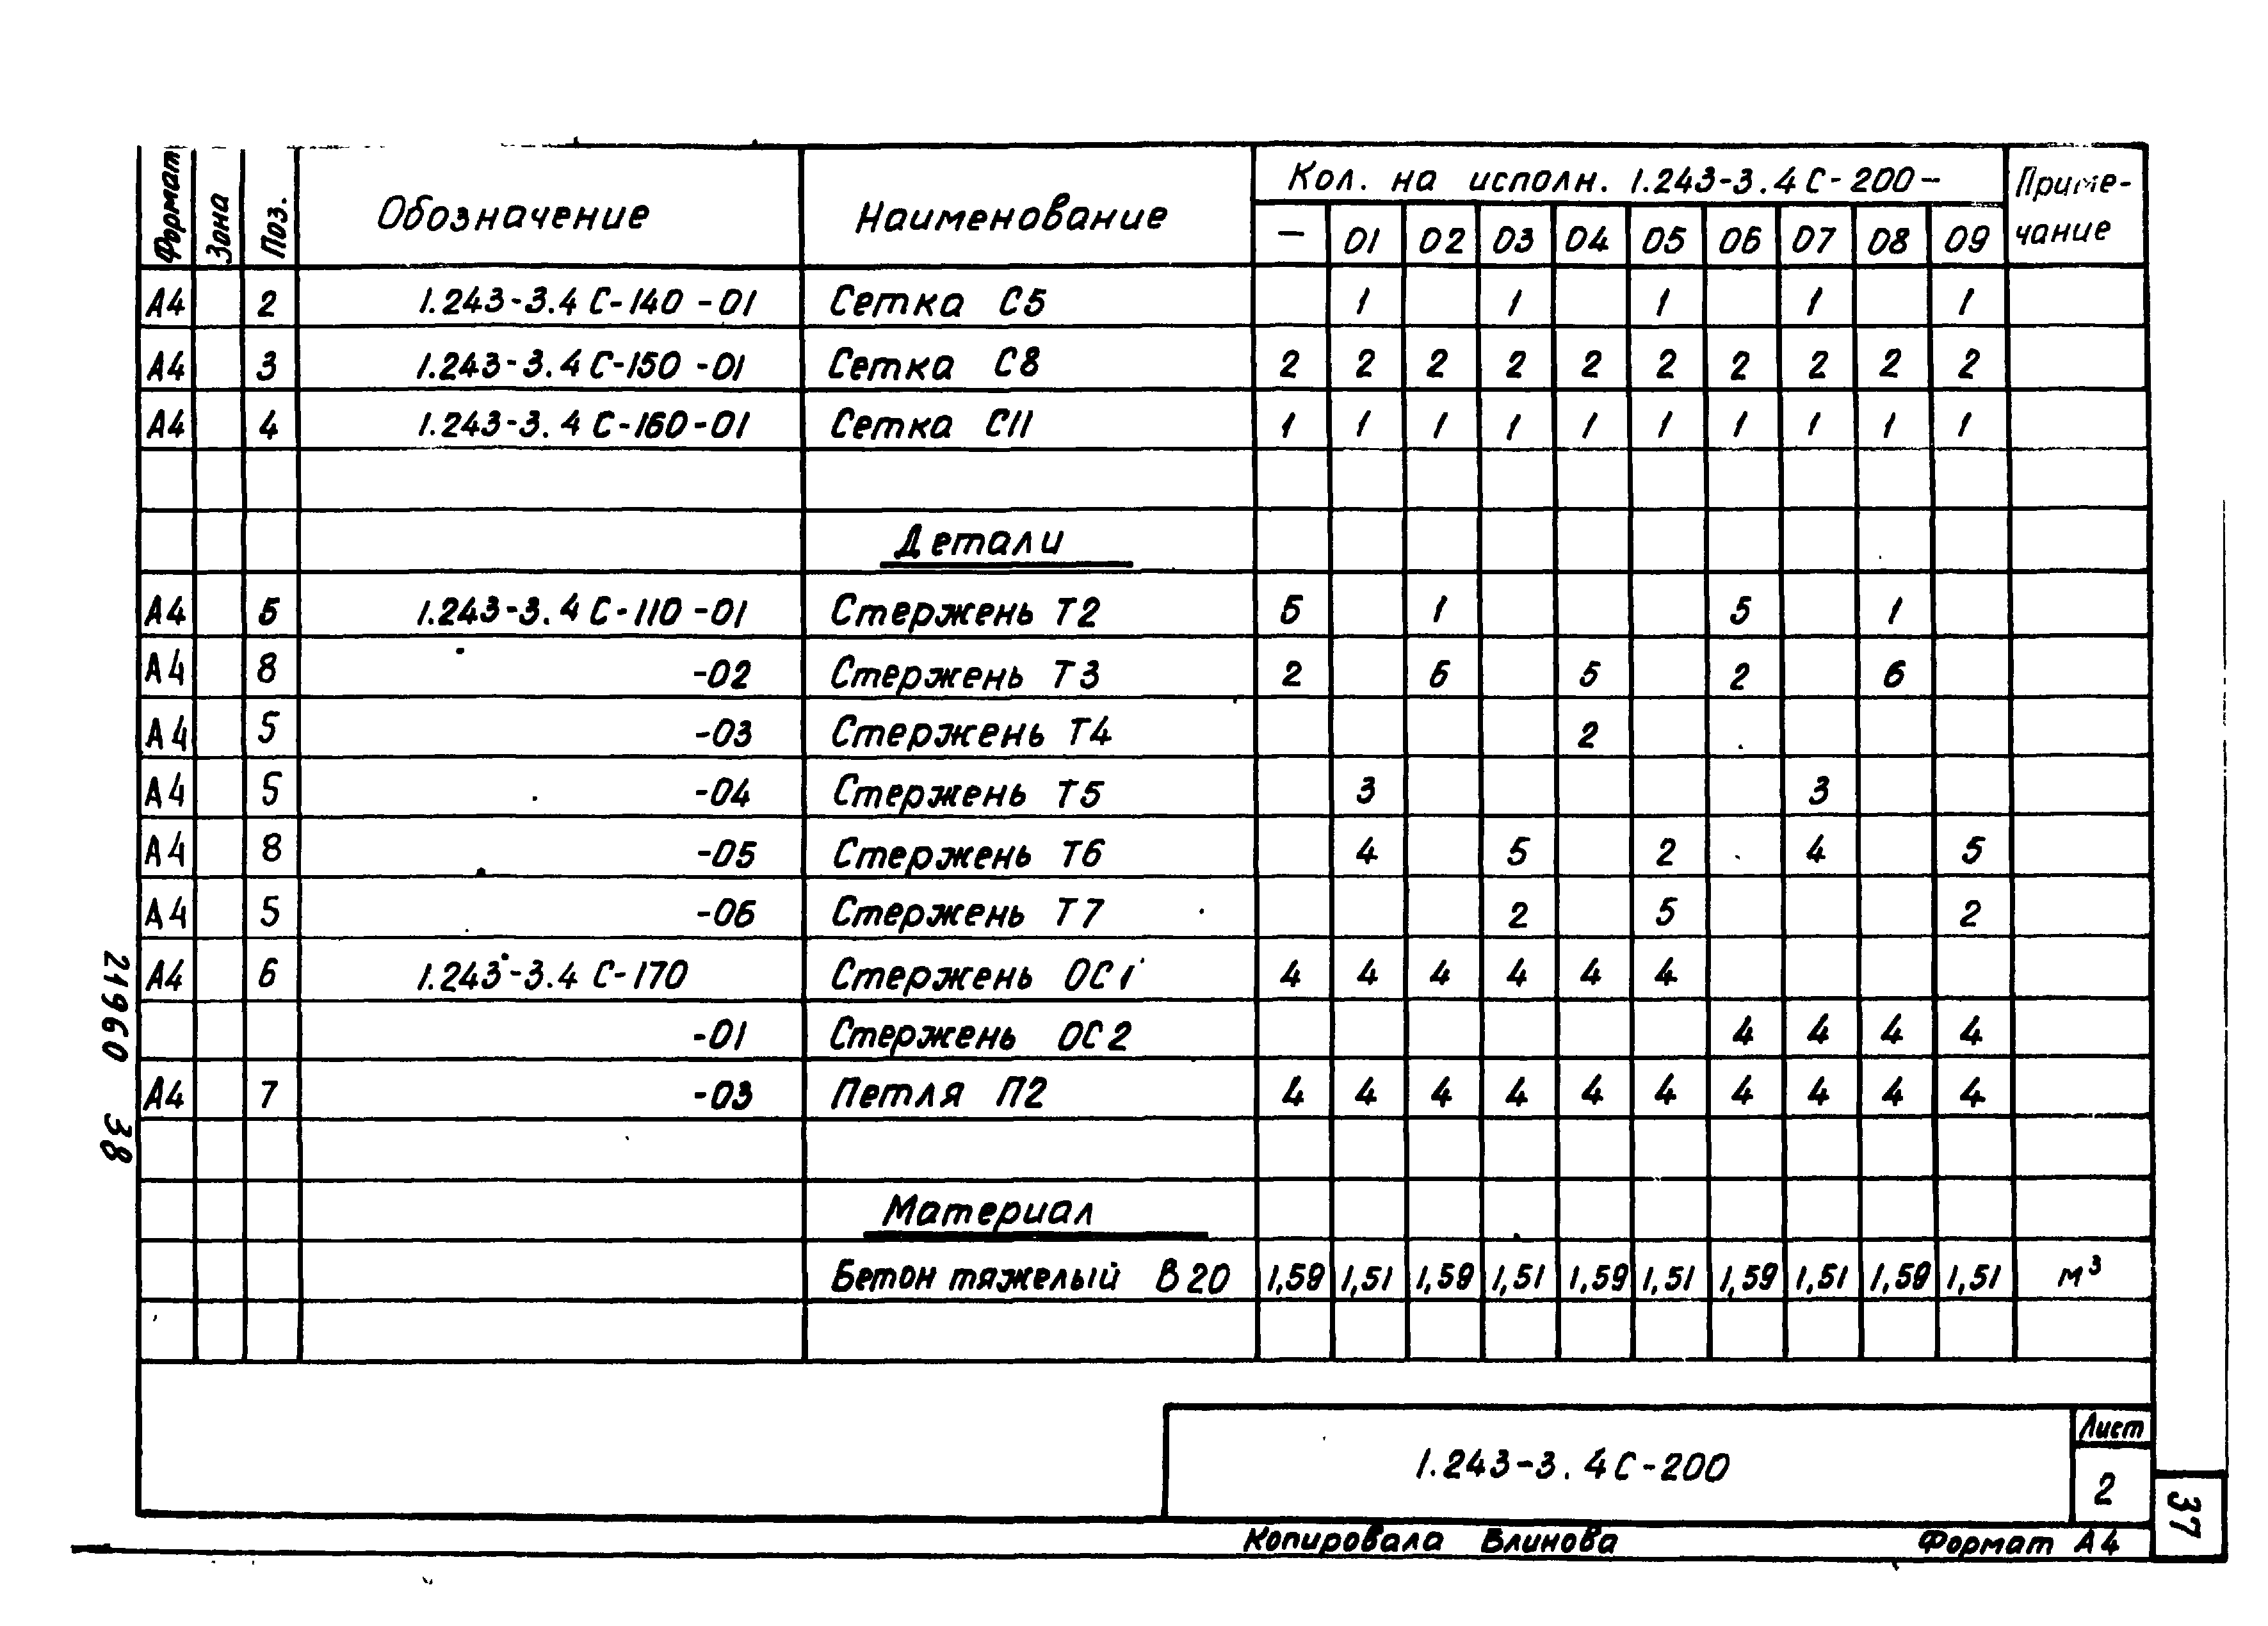 Формат Зона Поз. Обозначение Наименование Кол. на исполн. 1.243-3.4С-200- Приме-
чание
— 01 02 03 04 05 06 07 08 09
А4 2 1.243-3.4 С-140 -01 Сетка С5 1 1 1 1 1
А4 3 1.243-3.4 С-150 -01 Сетка С8 2 2 2 2 2 2 2 2 2 2
А4 4 1.243-3.4 С-160-01 Сетка С11 1 1 1 1 1 1 1 1 1 1
Детали
А4 5 1.243-3.4 С-110 -01 Стержень Т2 5 1 5 1
А4 8 -02 Стержень Т3 2 6 5 2 6
А4 5 -03 Стержень Т4 2
А4 5 -04 Стержень Т5 3 3
А4 8 -05 Стержень Т6 4 5 2 4 5
А4 5 -06 Стержень Т7 2 5 2
А4 6 1.243-3.4 С-170 Стержень ОС1 4 4 4 4 4 4
-01 Стержень ОС2 4 4 4 4
А4 7 -03 Петля П2 4 4 4 4 4 4 4 4 4 4
Материал
Бетон тяжелый В20 1,59 1,51 1,59 1,51 1,59 1,51 1,59 1,51 1,59 1,51 м³
21960 38
1.243-3.4С-200
Лист
2
37
Копировала Блинова Формат А4